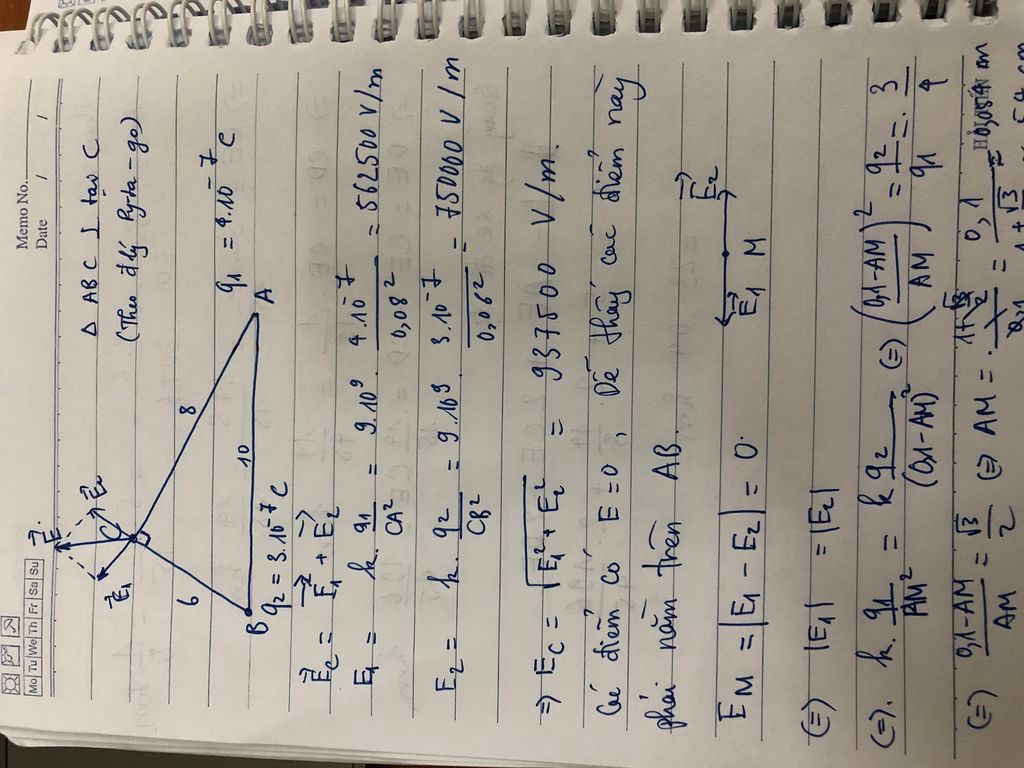 Memo No.
Mo Tu We Th Fr Sa Su
Date / /
Δ ABC ⊥ tại C
(Theo đ lý Pyta-go)
E⃗
E⃗₁
E⃗₂
C
6
8
10
B
A
q₁ = 4.10⁻⁷ C
q₂ = 3.10⁻⁷ C
E⃗c = E⃗₁ + E⃗₂
E₁ = k. q₁/CA² = 9.10⁹ 4.10⁻⁷/0,08² = 562500 V/m
E₂ = k. q₂/CB² = 9.10⁹ 3.10⁻⁷/0,06² = 750000 V/m
=> Ec = √(E₁² + E₂²) = 937500 V/m.
Các điểm có E=0, Dễ thấy các điểm này
phải nằm trên AB.
E⃗₁ M E⃗₂
E_M = |E₁ - E₂| = 0.
(=) |E₁| = |E₂|
(=). k. q₁/AM² = k q₂/(0,1-AM)² (=) ((0,1-AM)/AM)² = q₂/q₁ = 3/4
(=) (0,1-AM)/AM = √3/2 (=) AM =